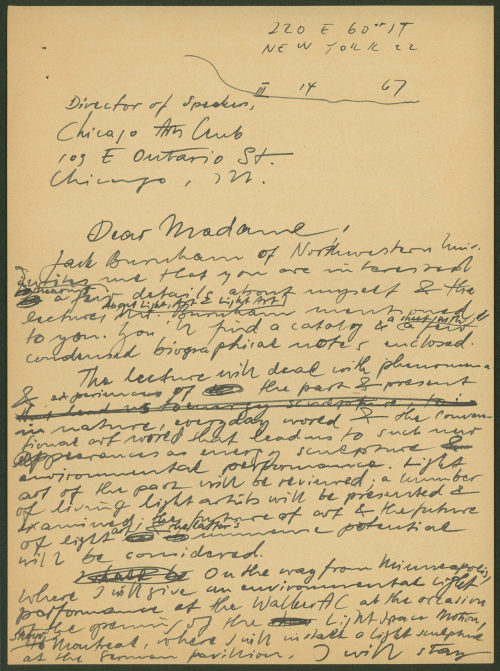 220 E 60th ST
NEW YORK 22
III 14 67
Director of Speakers,
Chicago Arts Club
109 E Ontario St.
Chicago, Ill.
Dear Madame,
Jack Burnham of Northwestern Univ.
writes me that you are interested
in hearing a few details about myself & the
lecture, About Light, Art & Light Art, Burnham mentioned
to you. You'll find a catalog & a
condensed biographical notes enclosed.
The lecture will deal with phenomena
& experiences of the past & present
in nature, everyday world & the conven-
tional art world that lead us to such new
appearances as energy sculpture &
environmental performance. Light
art of the past will be reviewed, a number
of living light artists will be presented &
examined, the future of art & the future
of light art & immense potential
will be considered.
On the way from Minneapolis,
where I will give an environmental light
performance at the Walker AC at the occasion
of the opening of the Light Space Motion,
show to Montreal, where I will install a light sculpture
at the German pavillion, I will stay